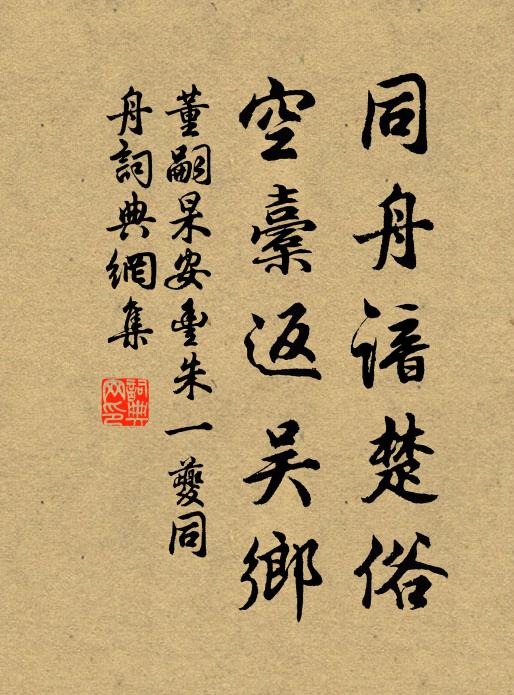 同舟諳楚俗
空橐返吳鄉
董嗣杲安豐朱一夔同
舟詞典網集